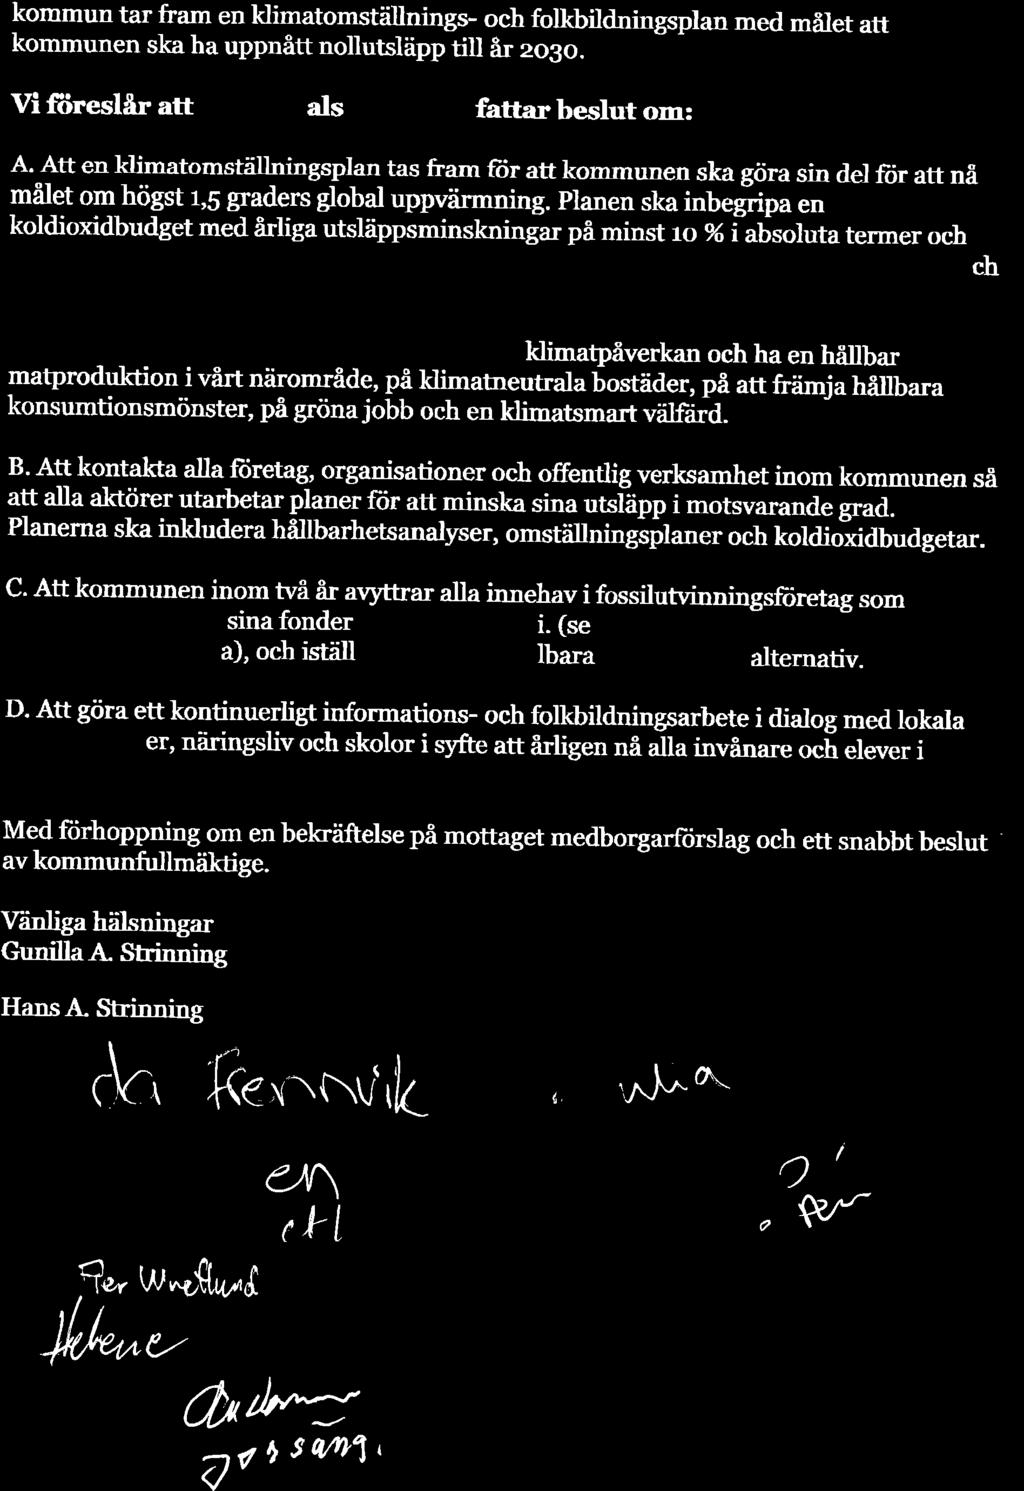 kommun tar fram en klimatomställnings- och folkbildningsplan med målet att
kommunen ska ha uppnått nollutsläpp till år 2030.
Vi föreslår att als fattar beslut om:
A. Att en klimatomställningsplan tas fram för att kommunen ska göra sin del för att nå
målet om högst 1,5 graders global uppvärmning. Planen ska inbegripa en
koldioxidbudget med årliga utsläppsminskningar på minst 10 % i absoluta termer och
ch
klimatpåverkan och ha en hållbar
matproduktion i vårt närområde, på klimatneutrala bostäder, på att främja hållbara
konsumtionsmönster, på gröna jobb och en klimatsmart välfärd.
B. Att kontakta alla företag, organisationer och offentlig verksamhet inom kommunen så
att alla aktörer utarbetar planer för att minska sina utsläpp i motsvarande grad.
Planerna ska inkludera hållbarhetsanalyser, omställningsplaner och koldioxidbudgetar.
C. Att kommunen inom två år avyttrar alla innehav i fossilutvinningsföretag som
sina fonder i. (se
a), och iställ lbara alternativ.
D. Att göra ett kontinuerligt informations- och folkbildningsarbete i dialog med lokala
er, näringsliv och skolor i syfte att årligen nå alla invånare och elever i
Med förhoppning om en bekräftelse på mottaget medborgarförslag och ett snabbt beslut
av kommunfullmäktige.
Vänliga hälsningar
Gunilla A. Strinning
Hans A. Strinning
da Frennvik
en
Per Wretlund
Helene